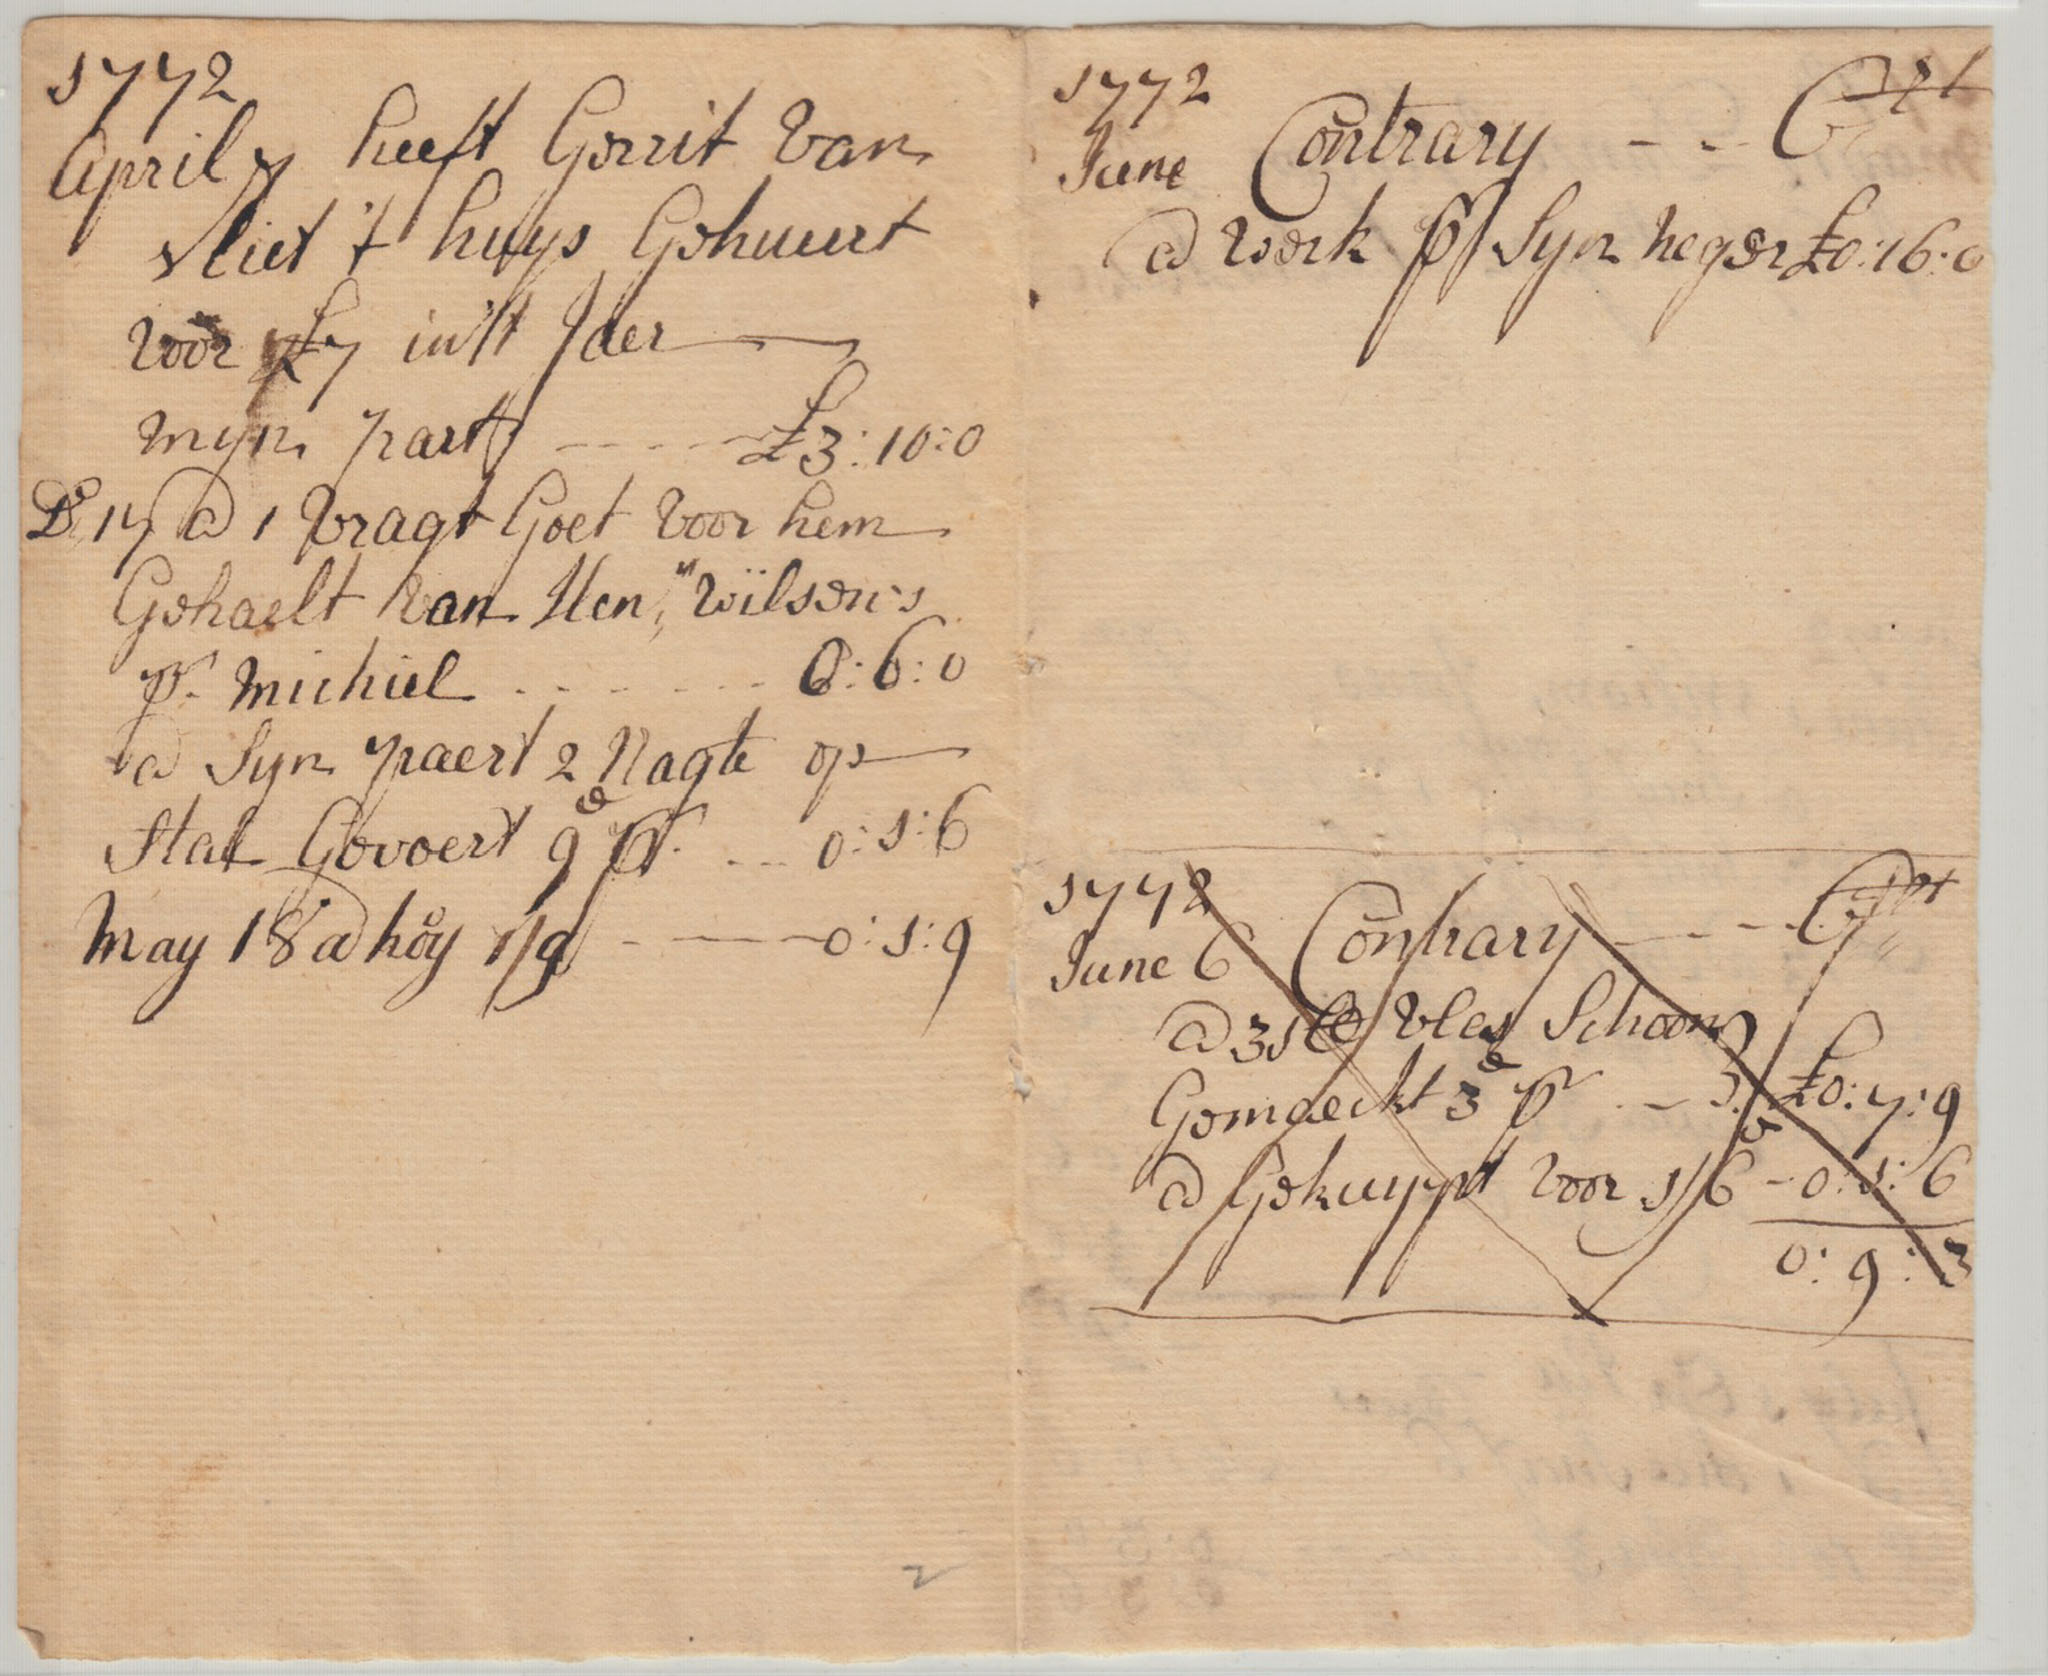 1772
April 7 heeft Gerrit Van
vliet 't huys Gehuert
voor £7 in't Jaer
myn part - - - - £3:10:0
Do 17 @ 1 vragt Goet voor hem
Gehaelt van Hen,, Wilsen's
pr michiel - - - - - - - 0:6:0
@ Syn paert 2 Nagte op
Stal Gevoert 9d pr. - - - 0:1:6
May 18 @ hoy 1/9 - - - 0:1:9
2
1772
June Contrary - - - Crt
@ werk pr Syn neger £0:16:0
1772
June 6 Contrary - - - - Crt
@ 31 Vles Schoon
Gemaeckt 3d pr - - £0:7:9
@ Gekuypt voor 1/6 - 0:1:6
0:9:3